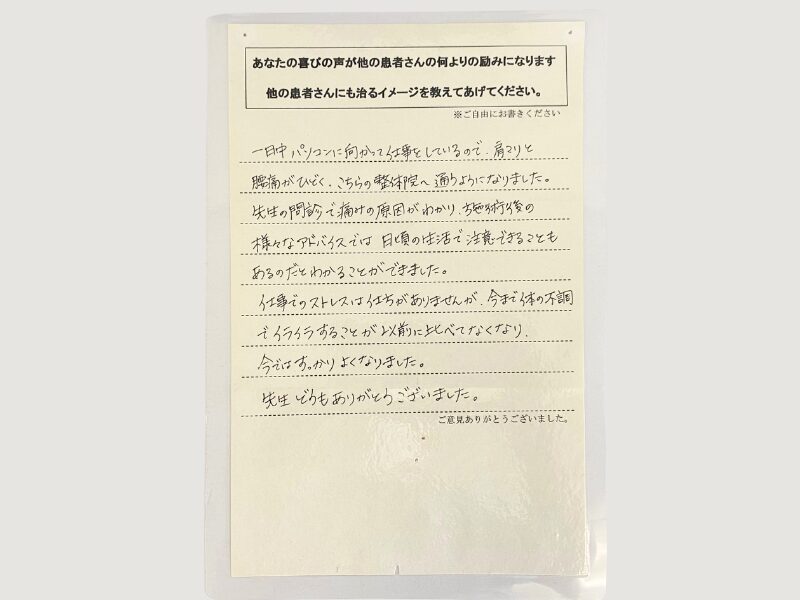 あなたの喜びの声が他の患者さんの何よりの励みになります
他の患者さんにも治るイメージを教えてあげてください。
※ご自由にお書きください
一日中パソコンに向かって仕事をしているので、肩コリと
腰痛がひどく、こちらの整体院へ通うようになりました。
先生の問診で痛みの原因がわかり、施術後の
様々なアドバイスでは日頃の生活で注意できることも
あるのだとわかることができました。
仕事でのストレスは仕方がありませんが、今まで体の不調
でイライラすることが以前に比べてなくなり、
今ではすっかりよくなりました。
先生どうもありがとうございました。
ご意見ありがとうございました。